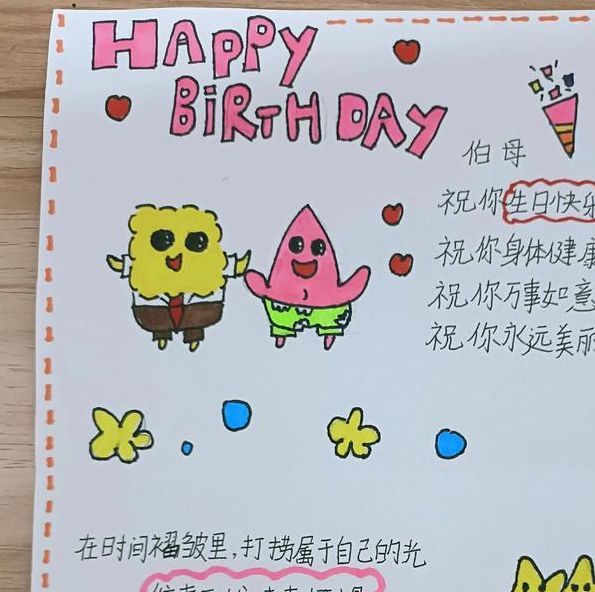 HAPPY
BiRTH DAY
伯母
祝你生日快乐
祝你身体健康
祝你万事如意
祝你永远美丽
在时间褶皱里,打捞属于自己的光